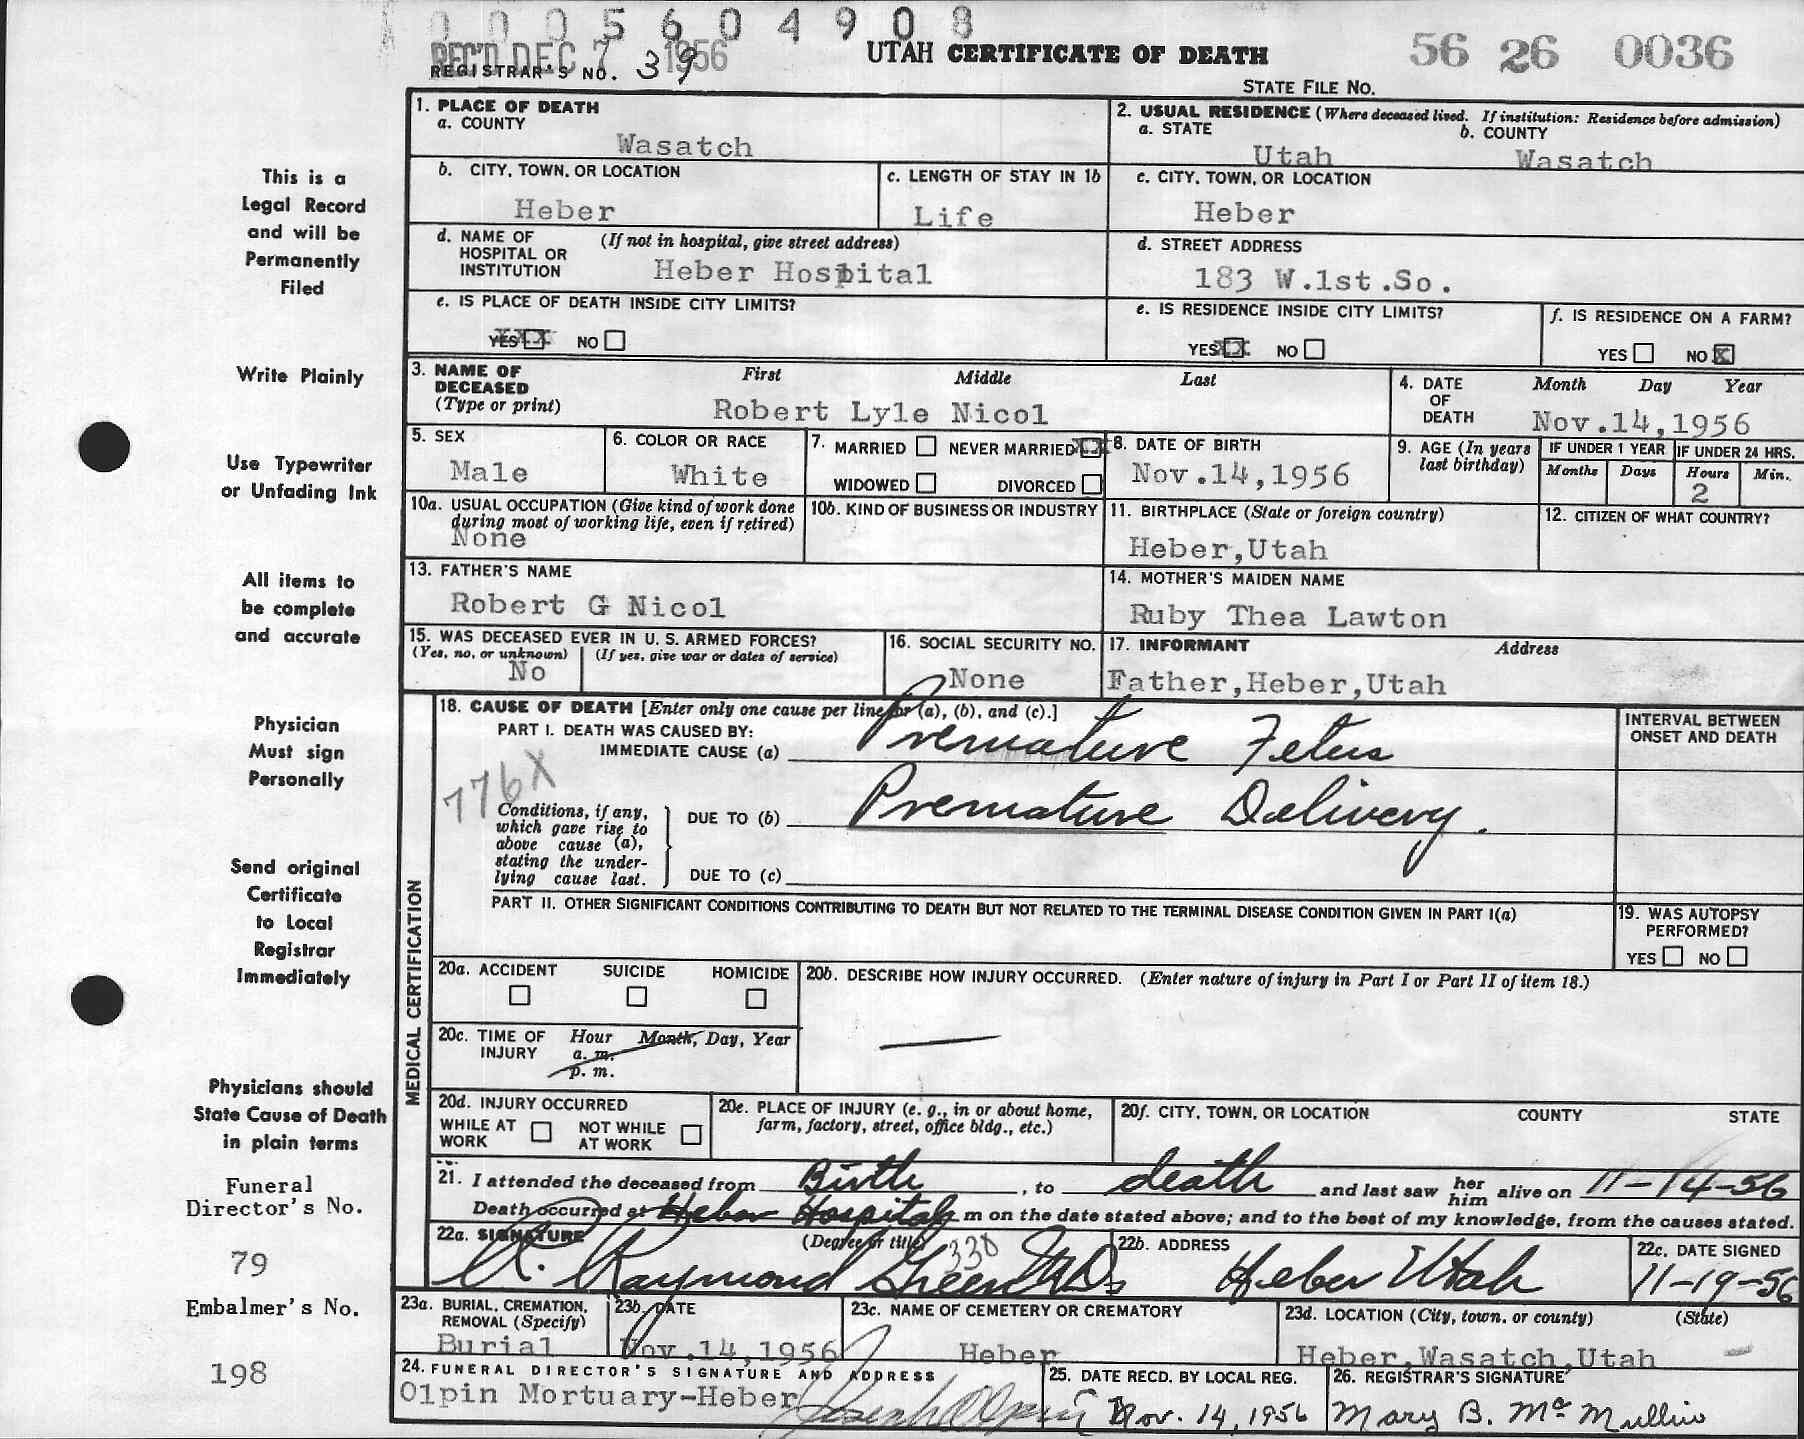 0005604908
REC'D DEC 7 1956
REGISTRAR'S NO. 39
UTAH CERTIFICATE OF DEATH
56 26 0036
STATE FILE NO.
1. PLACE OF DEATH
a. COUNTY
Wasatch
2. USUAL RESIDENCE (Where deceased lived. If institution: Residence before admission)
a. STATE b. COUNTY
Utah Wasatch
b. CITY, TOWN, OR LOCATION
Heber
c. LENGTH OF STAY IN 1b
Life
c. CITY, TOWN, OR LOCATION
Heber
d. NAME OF (If not in hospital, give street address)
HOSPITAL OR
INSTITUTION Heber Hospital
d. STREET ADDRESS
183 W.1st.So.
e. IS PLACE OF DEATH INSIDE CITY LIMITS?
YES XXX NO
e. IS RESIDENCE INSIDE CITY LIMITS?
YES XX NO
f. IS RESIDENCE ON A FARM?
YES NO X
3. NAME OF First Middle Last
DECEASED
(Type or print) Robert Lyle Nicol
4. DATE Month Day Year
OF
DEATH Nov.14,1956
5. SEX
Male
6. COLOR OR RACE
White
7. MARRIED NEVER MARRIED XX
WIDOWED DIVORCED
8. DATE OF BIRTH
Nov.14,1956
9. AGE (In years
last birthday)
IF UNDER 1 YEAR IF UNDER 24 HRS.
Months Days Hours Min.
2
10a. USUAL OCCUPATION (Give kind of work done
during most of working life, even if retired)
None
10b. KIND OF BUSINESS OR INDUSTRY
11. BIRTHPLACE (State or foreign country)
Heber,Utah
12. CITIZEN OF WHAT COUNTRY?
13. FATHER'S NAME
Robert G Nicol
14. MOTHER'S MAIDEN NAME
Ruby Thea Lawton
15. WAS DECEASED EVER IN U. S. ARMED FORCES?
(Yes, no, or unknown) (If yes, give war or dates of service)
No
16. SOCIAL SECURITY NO.
None
17. INFORMANT Address
Father,Heber,Utah
18. CAUSE OF DEATH [Enter only one cause per line for (a), (b), and (c).]
PART I. DEATH WAS CAUSED BY:
IMMEDIATE CAUSE (a) Premature Fetus
776X
Conditions, if any,
which gave rise to
above cause (a),
stating the under-
lying cause last.
DUE TO (b) Premature Delivery.
DUE TO (c)
INTERVAL BETWEEN
ONSET AND DEATH
PART II. OTHER SIGNIFICANT CONDITIONS CONTRIBUTING TO DEATH BUT NOT RELATED TO THE TERMINAL DISEASE CONDITION GIVEN IN PART I(a)
19. WAS AUTOPSY
PERFORMED?
YES NO
MEDICAL CERTIFICATION
20a. ACCIDENT SUICIDE HOMICIDE
20b. DESCRIBE HOW INJURY OCCURRED. (Enter nature of injury in Part I or Part II of item 18.)
20c. TIME OF Hour Month, Day, Year
INJURY a. m.
p. m.
20d. INJURY OCCURRED
WHILE AT NOT WHILE
WORK AT WORK
20e. PLACE OF INJURY (e. g., in or about home,
farm, factory, street, office bldg., etc.)
20f. CITY, TOWN, OR LOCATION COUNTY STATE
21. I attended the deceased from Birth, to death and last saw her him alive on 11-14-56
Death occurred at Heber Hospital m on the date stated above; and to the best of my knowledge, from the causes stated.
22a. SIGNATURE (Degree or title) 330
R. Raymond Green M.D.
22b. ADDRESS
Heber Utah
22c. DATE SIGNED
11-19-56
23a. BURIAL, CREMATION,
REMOVAL (Specify)
Burial
23b. DATE
Nov.14,1956
23c. NAME OF CEMETERY OR CREMATORY
Heber
23d. LOCATION (City, town, or county) (State)
Heber,Wasatch,Utah
24. FUNERAL DIRECTOR'S SIGNATURE AND ADDRESS
Olpin Mortuary-Heber Joseph Olpin
25. DATE RECD. BY LOCAL REG.
Nov. 14, 1956
26. REGISTRAR'S SIGNATURE
Mary B. McMullin
This is a
Legal Record
and will be
Permanently
Filed
Write Plainly
Use Typewriter
or Unfading Ink
All items to
be complete
and accurate
Physician
Must sign
Personally
Send original
Certificate
to Local
Registrar
Immediately
Physicians should
State Cause of Death
in plain terms
Funeral
Director's No.
79
Embalmer's No.
198